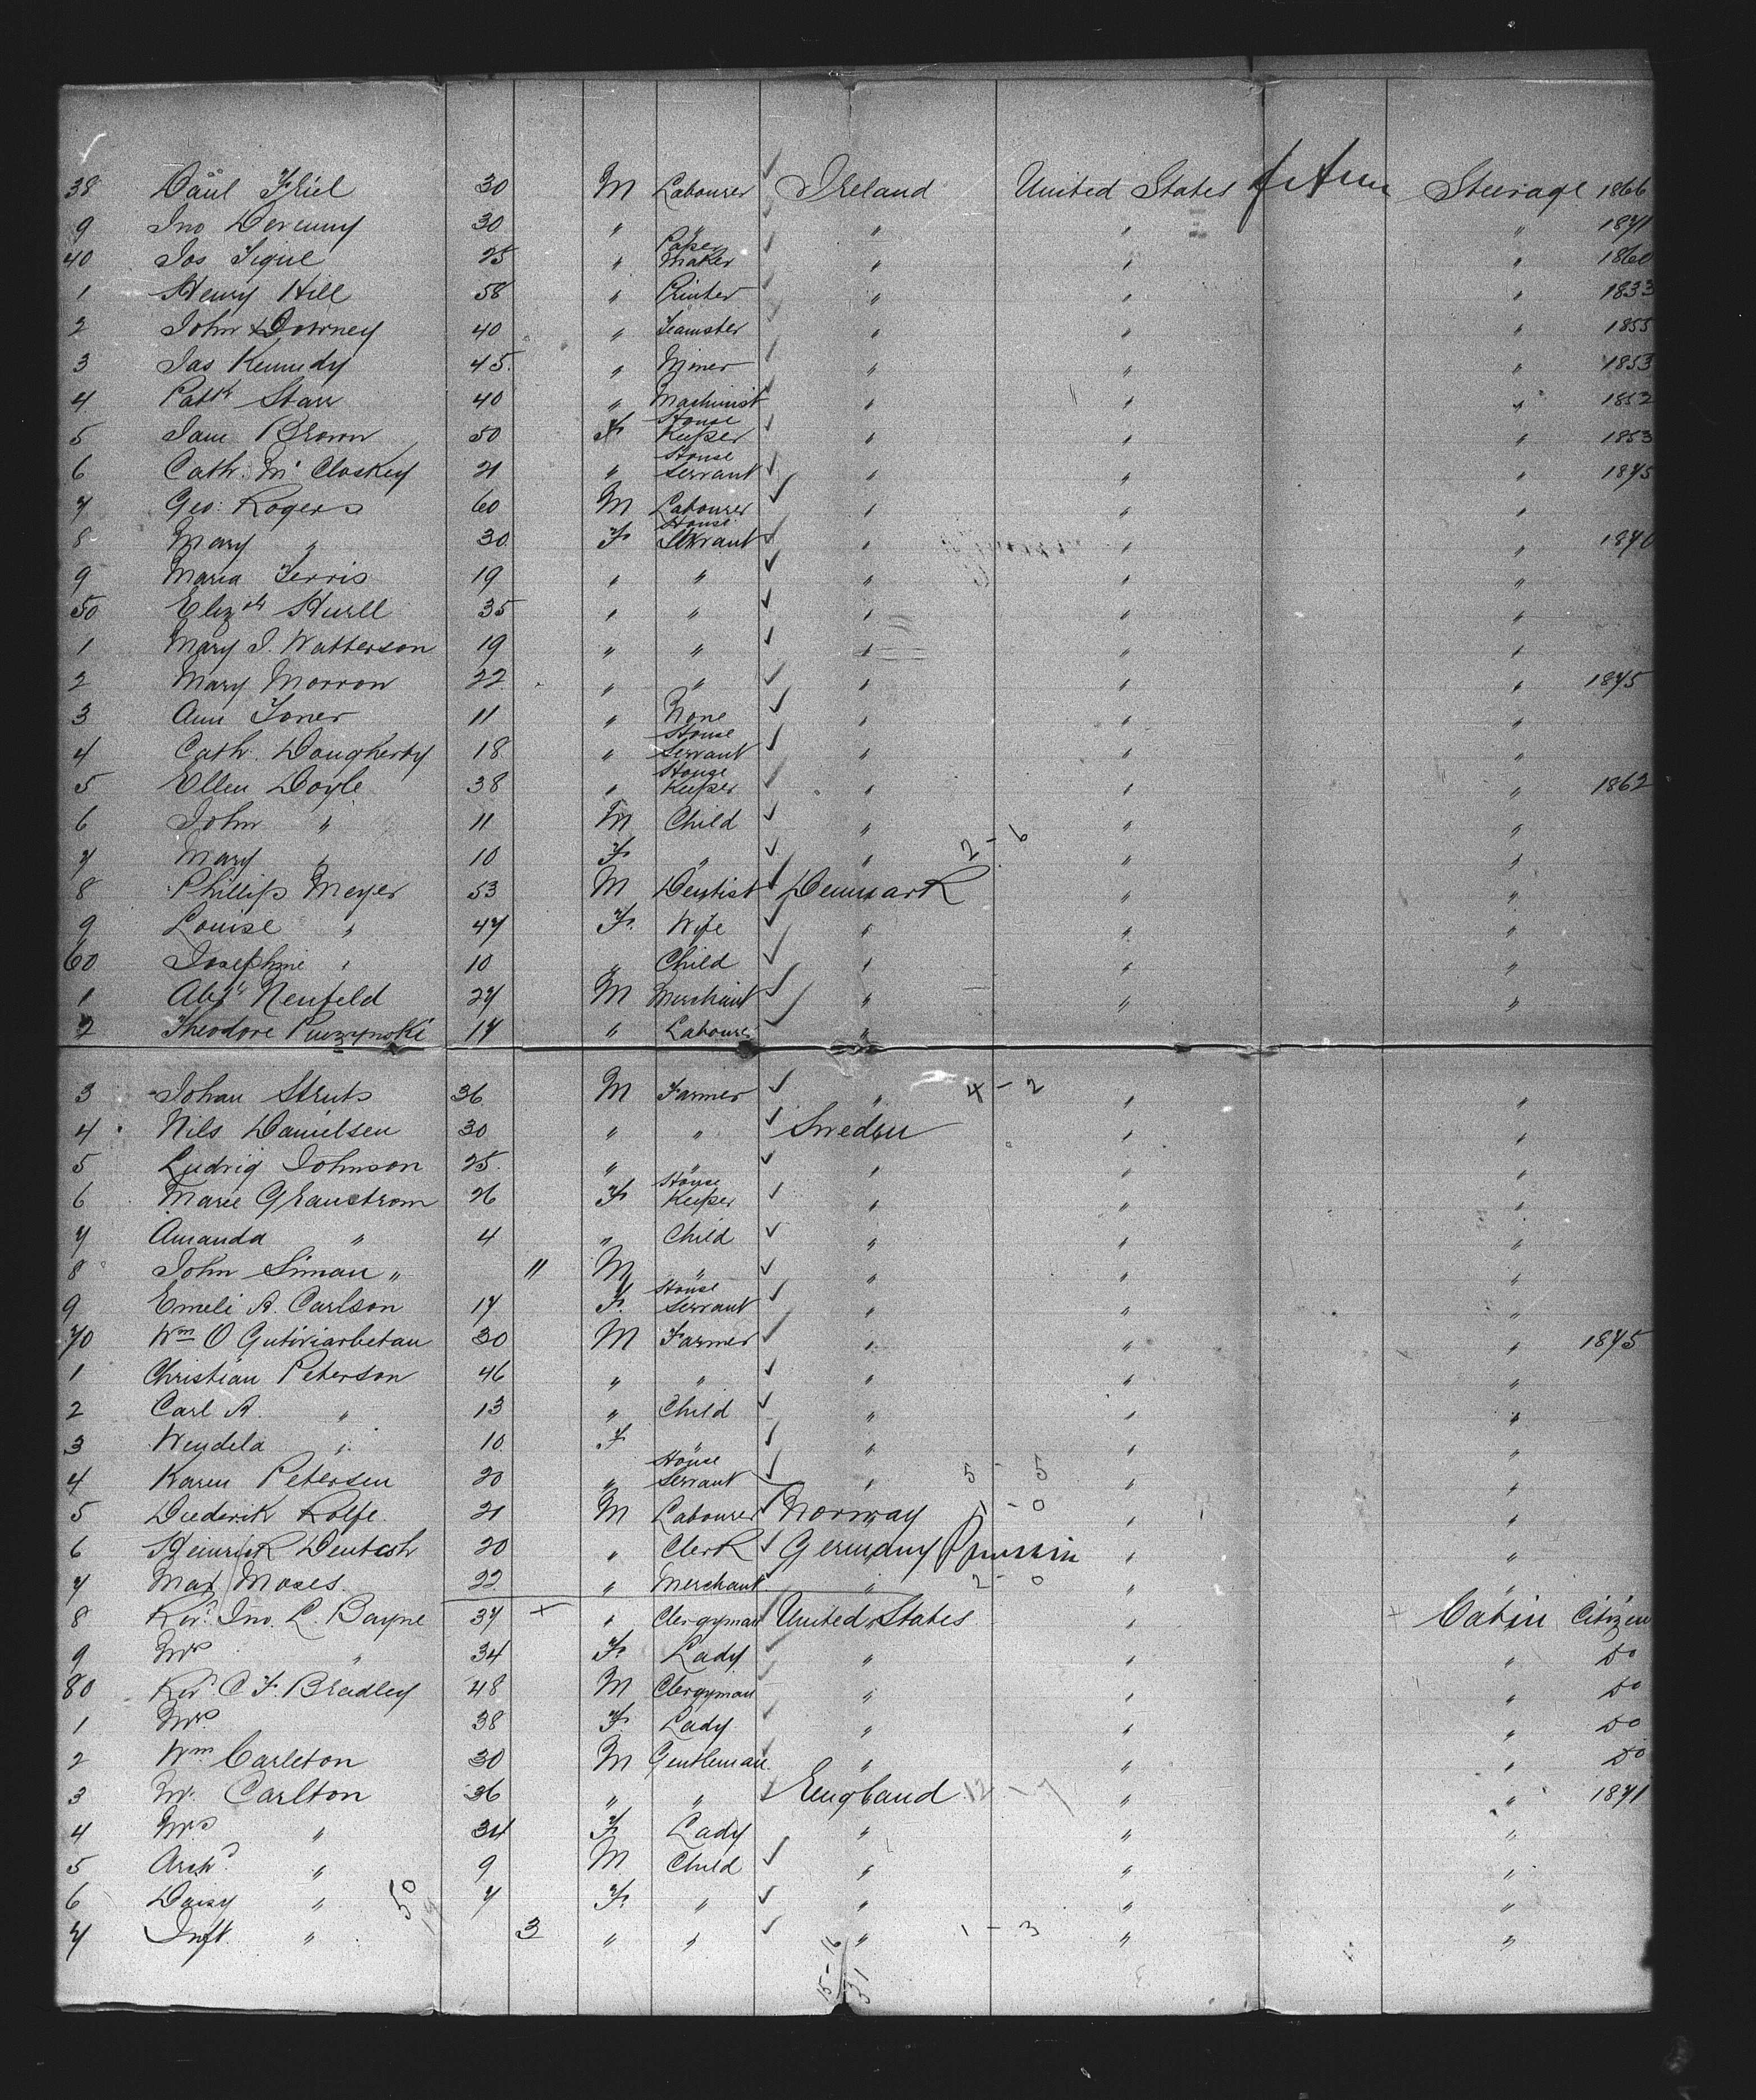 38 Danl Friel 30 M Labourer Ireland United States Steerage 1866
9 Jno Devenny 30 " " " " " 1871
40 Jos Teque 25 " Paper Maker " " " 1860
1 Henry Hill 58 " Printer " " " 1833
2 John Downey 40 " Teamster " " " 1855
3 Jas Kennedy 45 " Miner " " " 1853
4 Patk Starr 40 " Machinist " " " 1852
5 Jane Brown 50 F House Keeper " " " 1853
6 Cath. McCloskey 21 " House Servant " " " 1875
7 Geo: Rogers 60 M Labourer " " "
8 Mary " 30 F House Servant " " " 1870
9 Maria Ferris 19 " " " " "
50 Elizth Hurll 35 " " " " "
1 Mary J. Watterson 19 " " " " "
2 Mary Morron 22 " " " " " 1875
3 Ann Toner 11 " None " " "
4 Cath. Dougherty 18 " House Servant " " "
5 Ellen Doyle 38 " House Keeper " " " 1862
6 John " 11 M Child " " "
7 Mary " 10 F " " 2 - 6 " "
8 Phillip Meyer 53 M Dentist Denmark " "
9 Louise " 47 F. Wife " " "
60 Josephine " 10 " Child " " "
1 Alexr Neufeld 27 M Merchant " " "
2 Theodore 17 " Labourer "
3 Johan Struts 36 M Farmer " 4 - 2 " "
4 Nils Danielsen 30 " " Sweden " "
5 Ludvig Johnson 25 " " " " "
6 Marie Granstrom 26 F House Keeper " " "
7 Amanda " 4 " Child " " "
8 John Siman " 11 M " " " "
9 Emeli A. Carlson 17 F. House Servant " " "
70 Wm O 30 M Farmer " " " 1875
1 Christian Peterson 46 " " " " "
2 Carl A. " 13 " Child " " "
3 Wendela " 10 F " " " "
4 Karen Petersen 20 " House Servant " 5 - 5 " "
5 Diederik Rolfe 21 M Labourer Norway 1 - 0 " "
6 Heinrick Deutsch 20 " Clerk Germany Prussia " "
7 Max Moses 22 " Merchant " 2 - 0 " "
8 Revd. Jno. L. Bayne 37 + " Clergyman United States " Cabin Citizen
9 Mrs " 34 F Lady " " " Do
80 Revd. C. F. Bradley 48 M Clergyman " " " Do
1 Mrs 38 F Lady " " " Do
2 Wm Carleton 30 M Gentleman " " " Do
3 Mr. Carlton 36 " " England 12 - 7 " " 1871
4 Mrs " 34 F Lady " " "
5 Archd " 9 M Child " " "
6 Daisy " 7 F " " " "
7 Inft. " 50 3 " " " 1 - 3 " "
15-16
31